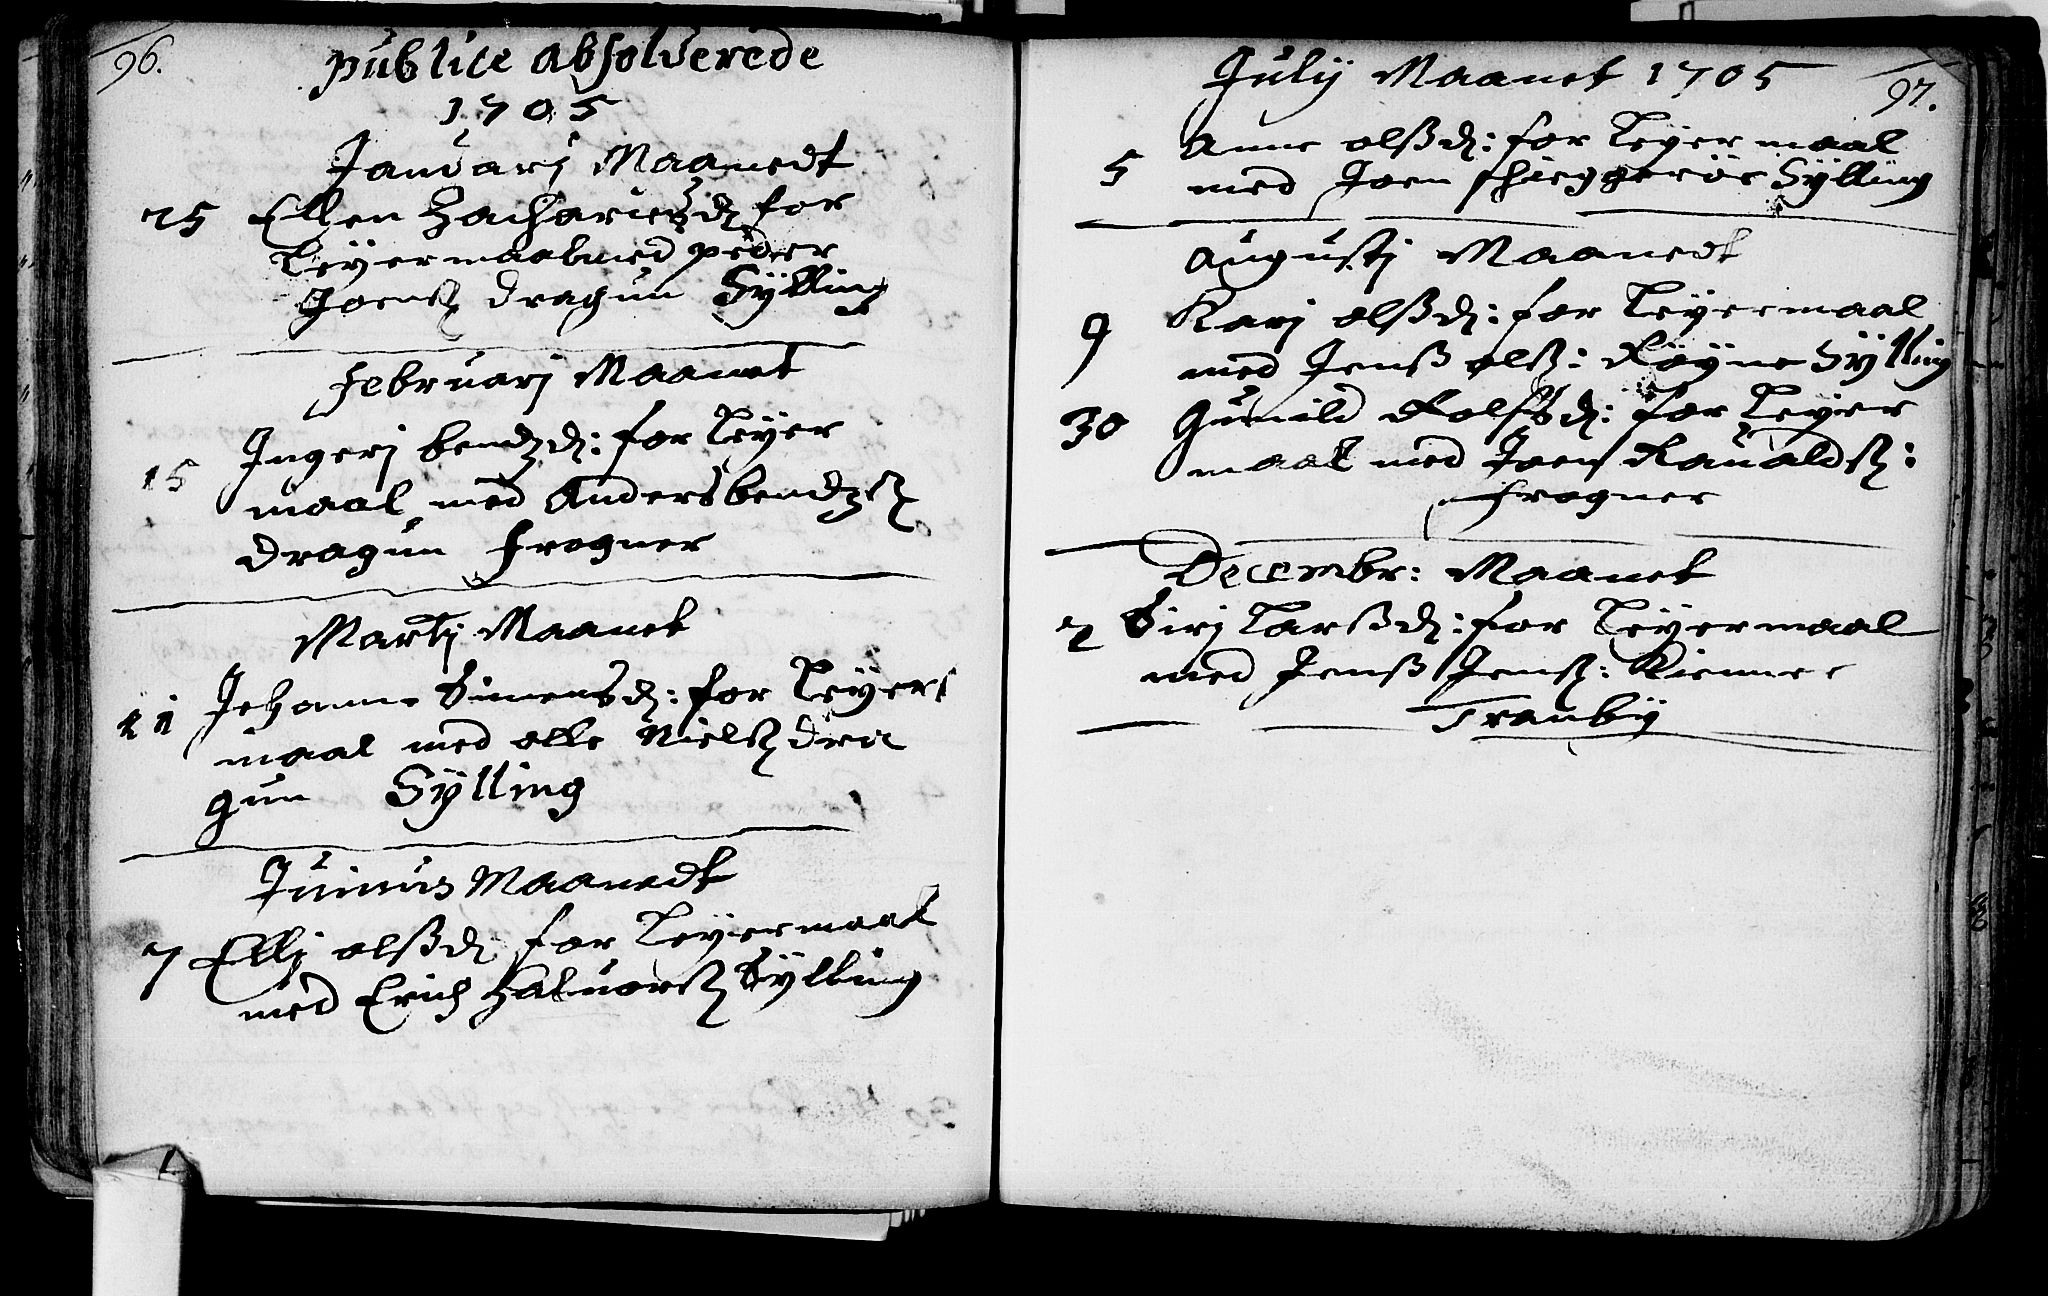 96.
publice absolverede
1705
Januarj Maanedt
25 Ellen Zachariesdz for
Leyermaal med peder
Joensz dragun Sylling
Februarj Maanet
15 Ingerj bendzdz: for Leyer
maal med Anders bendzsz
dragun Frogner
Martj Maanet
Johanne Simensdz: for Leyer
maal med olle Nielsz dra
gun Sylling
Junius Maanedt
7 Ellj olsßdz for Leyermaal
med Erich Haluorsz Sylling
97.
July Maanet 1705
5 Anne olßdz: for Leyermaal
med Joen Sylling
Augustj Maanedt
9 Karj olßdz: for Leyermaal
med Jenß olß: Røyne Sylling
30 Gunild Rolfsdz: for Leyer
maal med Joen Raualdsz:
Frogner
Decembr: Maanet
2 Sirj Larßdz: for Leyermaal
med Jenß Jensz: Kienner
Tranby